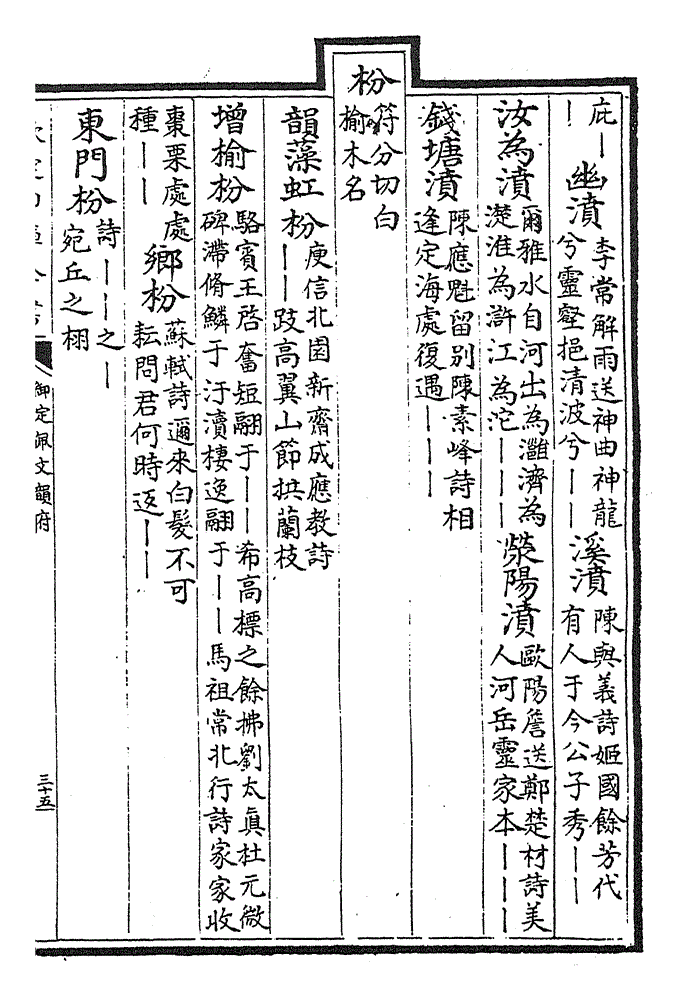 庇｜｜幽濆李常解雨送神曲神龍兮靈壑挹清波兮｜｜溪濆陳與義詩姬國餘芳代有人于今公子秀｜｜
汝為濆爾雅水自河出為灉濟為濋淮為滸江為沱｜｜｜滎陽濆歐陽詹送鄭楚材詩美人河岳靈家本｜｜｜
錢塘濆陳應魁留別陳素峰詩相逢定海處復遇｜｜｜
枌符分切白榆木名
韻藻虹枌庾信北園新齋成應教詩｜｜跂高翼山節拱蘭枝
增榆枌駱賓王啓奮短翮于｜｜希高標之餘拂劉太真杜元微碑滯脩鱗于汙瀆棲逸翮于｜｜馬祖常北行詩家家收
棗栗處處種｜｜鄉枌蘇軾詩邇來白髮不可耘問君何時返｜｜
東門枌詩｜｜之｜宛丘之栩
御定佩文韻府
三十五